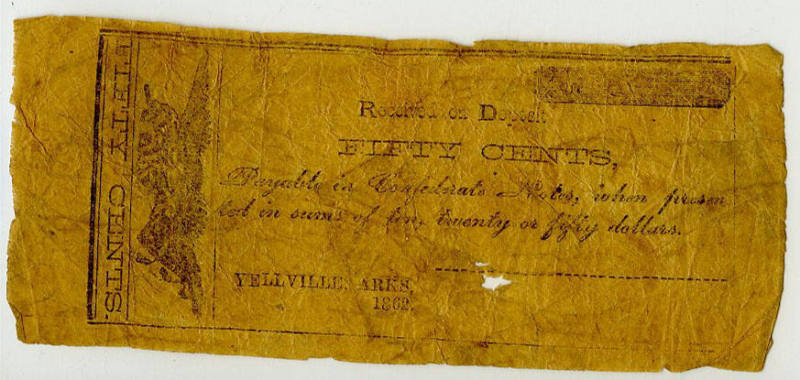 FIFTY CENTS
Received on Deposit
FIFTY CENTS,
Payable in Confederate Notes, when presen
ted in sums of ten, twenty or fifty dollars.
YELLVILLE, ARKS,
1862.